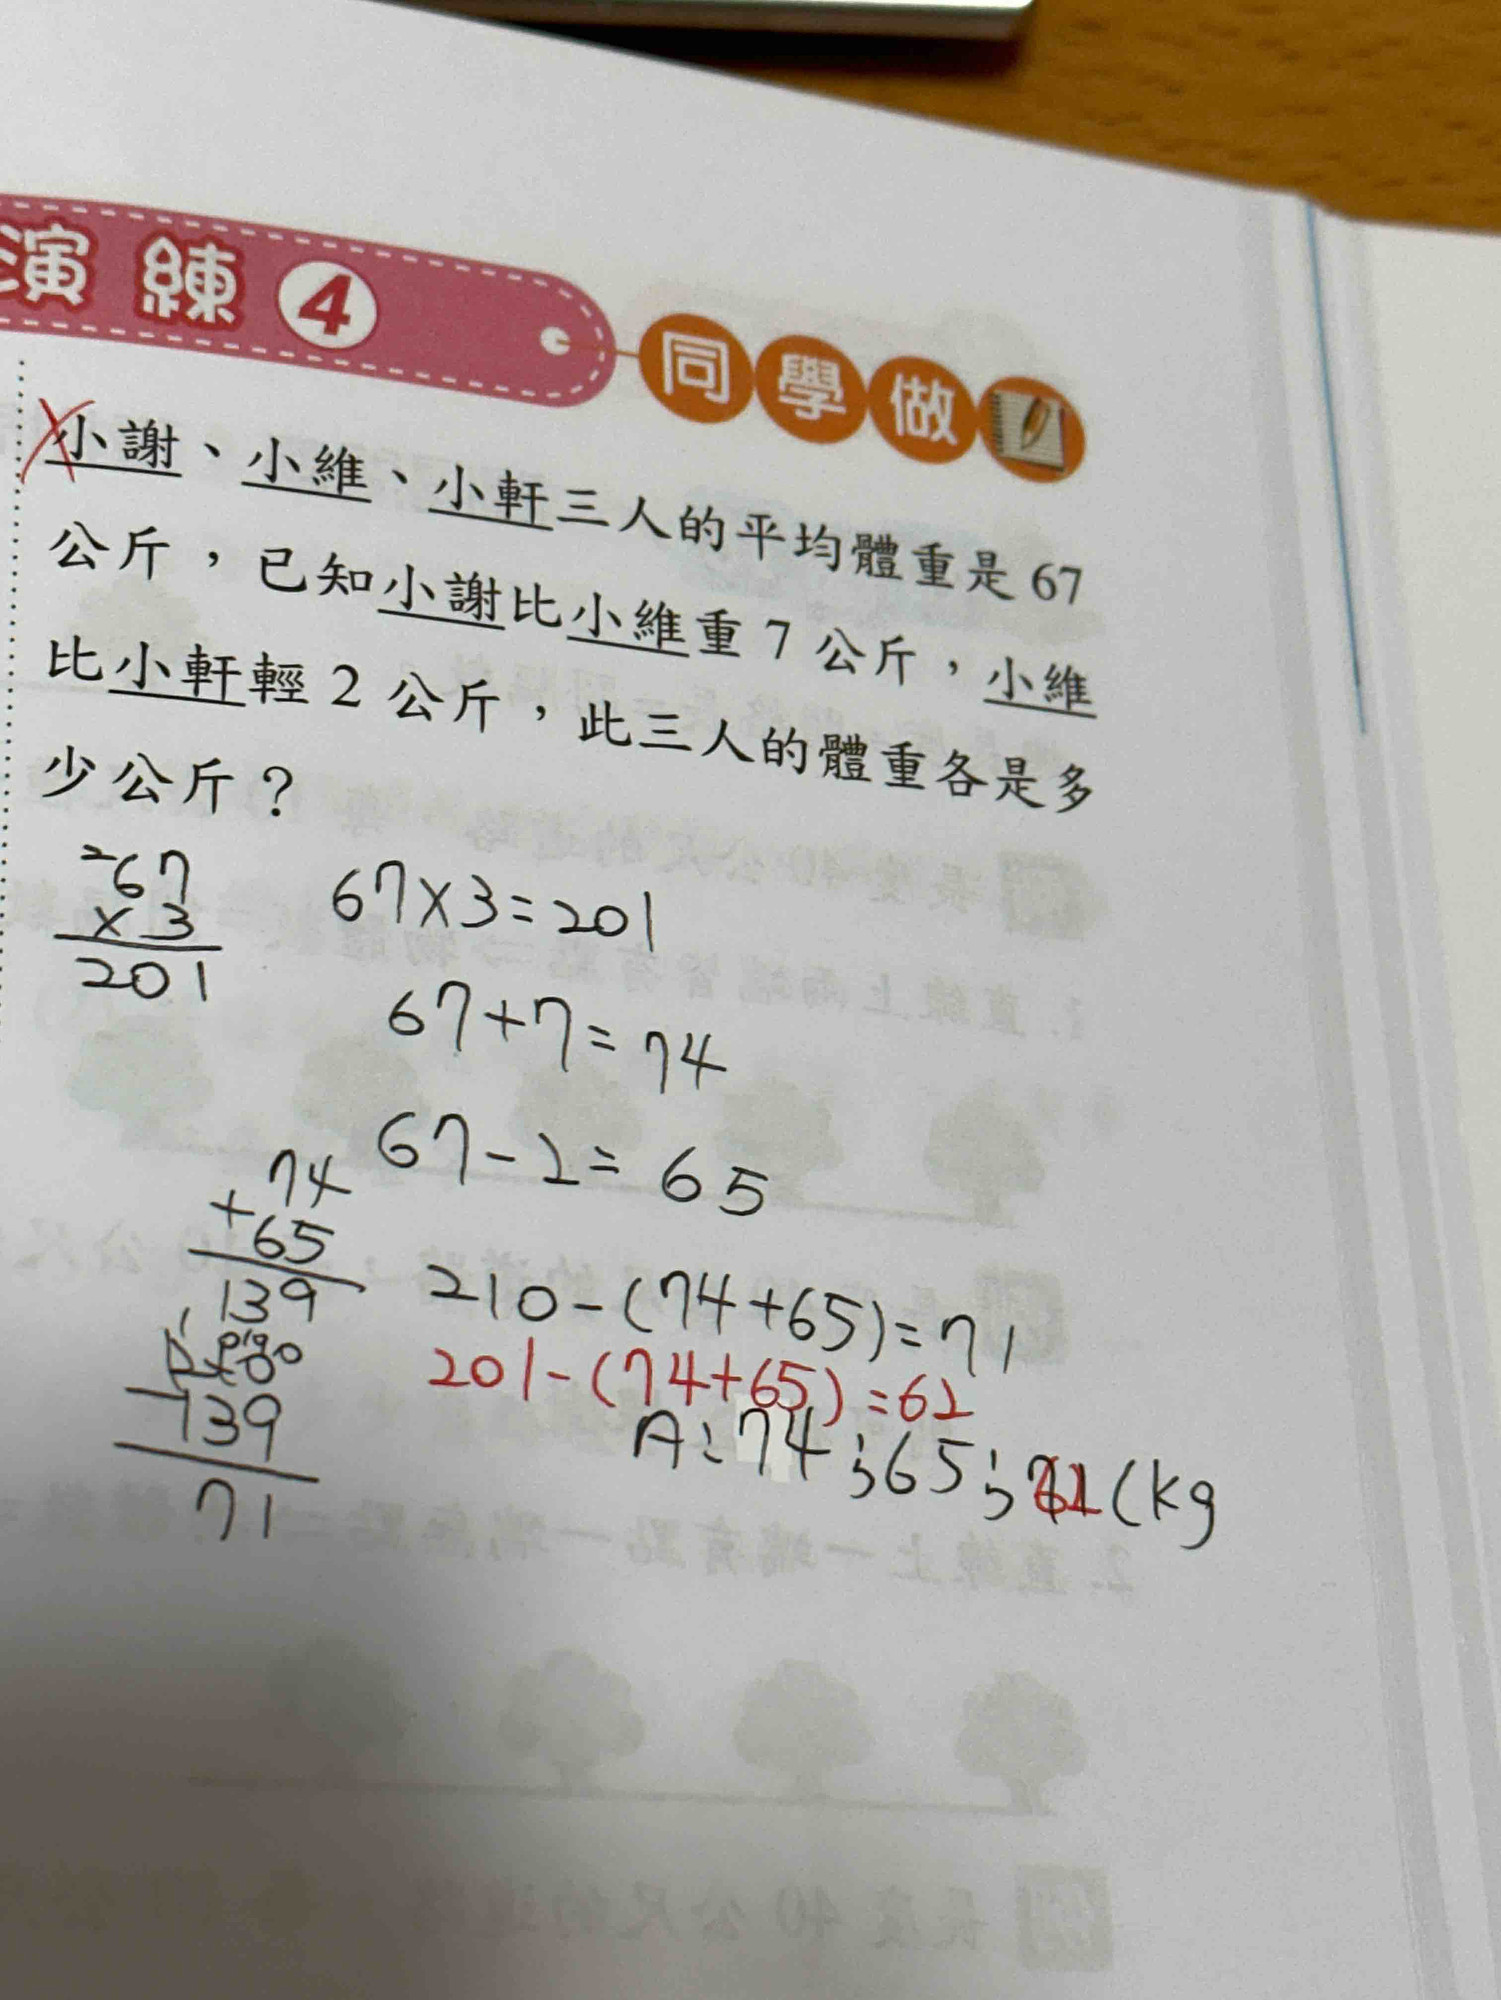 演練4 同學做
小謝、小維、小軒三人的平均體重是67
公斤，已知小謝比小維重7公斤，小維
比小軒輕2公斤，此三人的體重各是多
少公斤？
67×3=201
2
67
×3
201
67+7=74
67-2=65
74
+65
139
210-(74+65)=71
201-(74+65)=62
-139
71
A:74;65;(kg